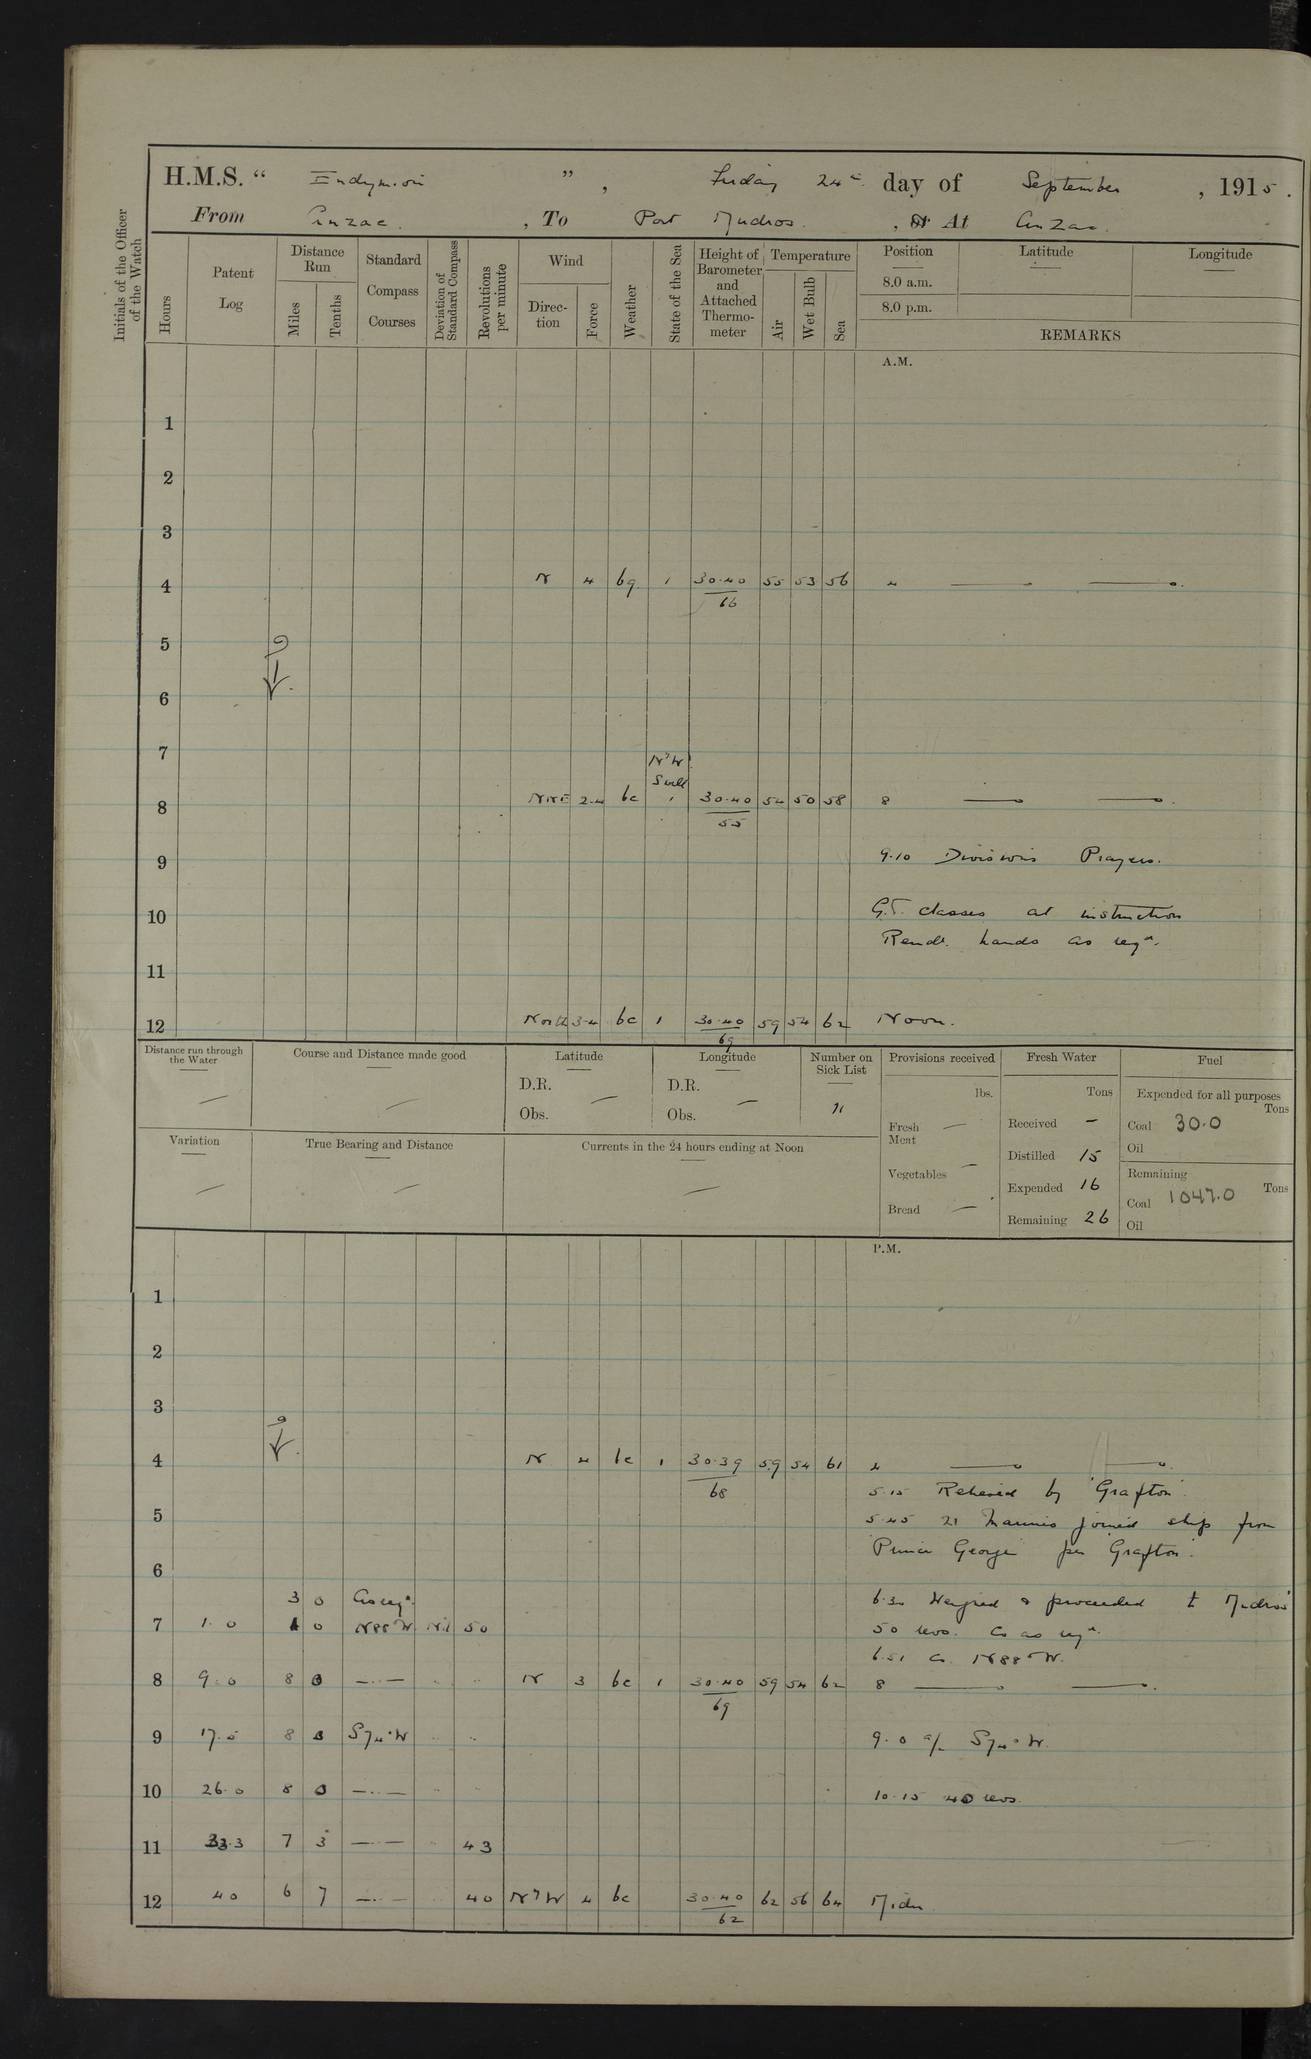 H.M.S. “ Endymion ” , Friday 24th day of September , 1915 .
From Anzac. , To Port Mudros. , or At Anzac.
Initials of the Officer of the Watch
Hours
Patent Log
Distance Run
Miles
Tenths
Standard Compass Courses
Deviation of Standard Compass
Revolutions per minute
Wind
Direc-tion
Force
Weather
State of the Sea
Height of Barometer and Attached Thermo-meter
Temperature
Air
Wet Bulb
Sea
Position
Latitude
Longitude
8.0 a.m.
8.0 p.m.
REMARKS
A.M.
1
2
3
4 N 4 bg 1 30.40 55 53 56 4
66
5
6
7
N'W
Swell
8 NNE 2-4 bc 1 30.40 54 50 58 8
55
9 9.10 Divisions Prayers.
10 G.T. classes at instruction
Remdr hands as reqd.
11
12 North 3-4 bc 1 30.40 59 54 62 Noon.
69
Distance run through the Water
Course and Distance made good
Latitude
D.R.
Obs.
Longitude
D.R.
Obs.
Number on Sick List
11
Provisions received
lbs.
Fresh Meat —
Vegetables —
Bread —
Fresh Water
Tons
Received —
Distilled 15
Expended 16
Remaining 26
Fuel
Expended for all purposes
Tons
Coal 30.0
Oil
Remaining
Tons
Coal 1047.0
Oil
Variation
True Bearing and Distance
Currents in the 24 hours ending at Noon
P.M.
1
2
3
4 N 4 bc 1 30.39 59 54 61 4
68
5.15 Relieved by "Grafton"
5 5.45 21 Marines joined ship from
"Prince George" per "Grafton".
6
3 0 As reqd. 6.30 Weighed & proceeded to Mudros
7 1.0 0 N88°W Nil 50 50 revs. Co as reqd.
6.51 Co. N88°W.
8 9.0 8 0 —..— N 3 bc 1 30.40 59 54 62 8
69
9 17.5 8 S74°W 9.0 a/c S74°W.
10 26.0 8 0 —..— 10.15 40 revs.
11 33.3 7 3 —..— 43
12 40 6 7 —..— 40 N'W 4 bc 30.40 62 56 64 Midn
62